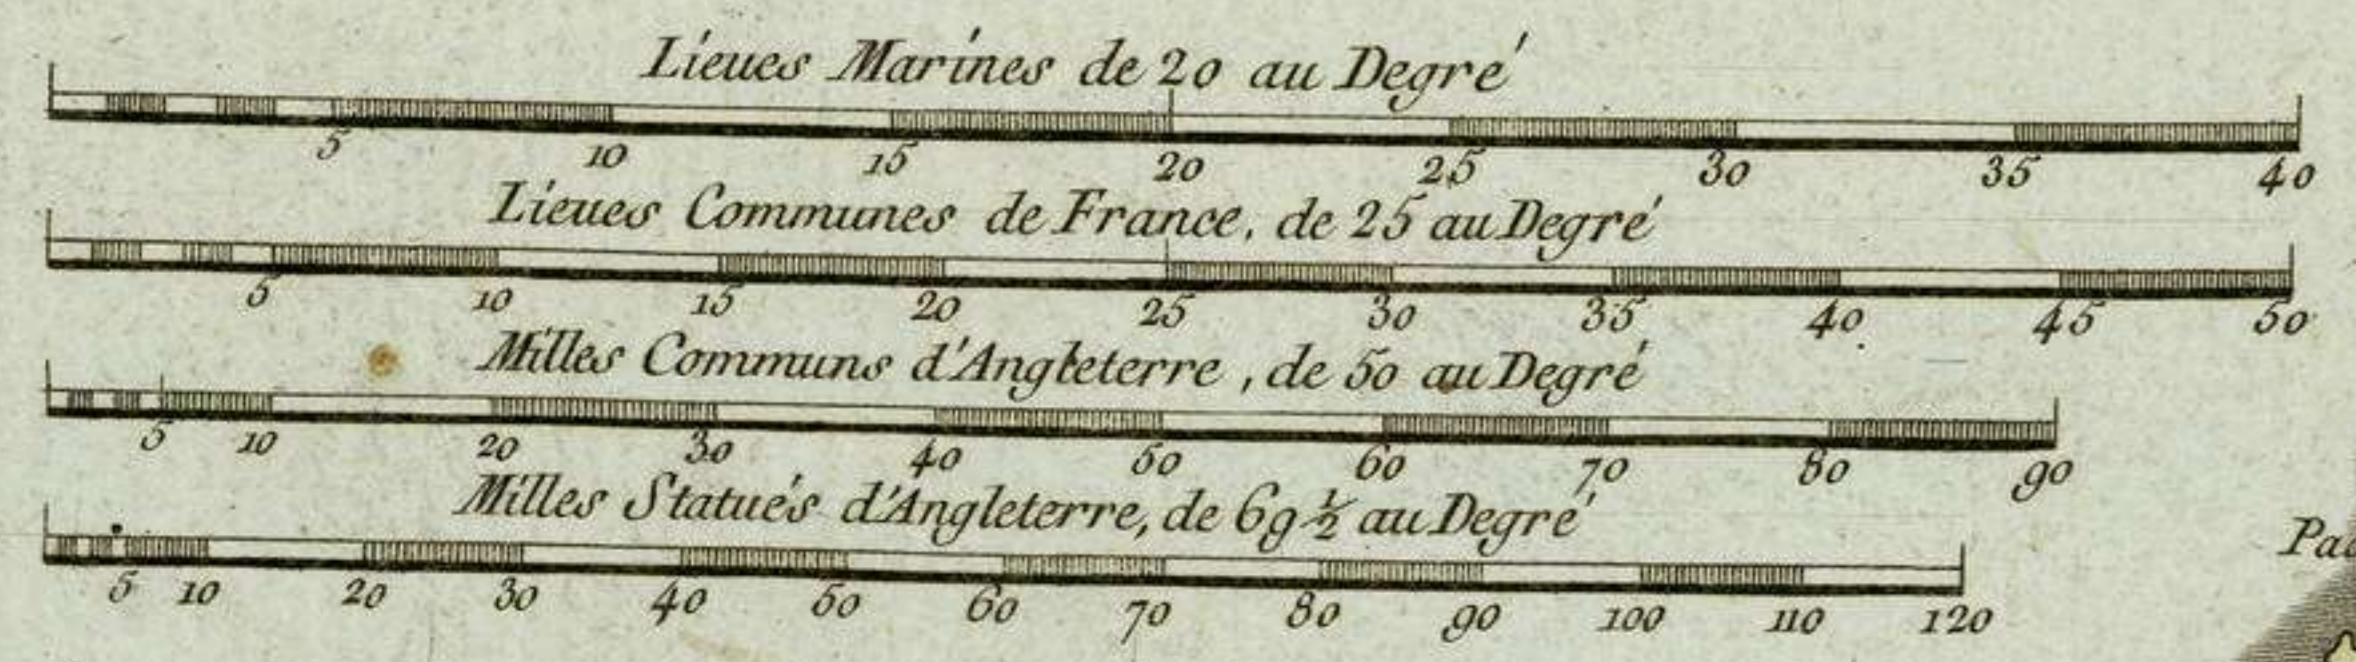 Lieues Marines de 20 au Degré
5 10 15 20 25 30 35 40
Lieues Communes de France, de 25 au Degré
5 10 15 20 25 30 35 40 45 50
Milles Communs d'Angleterre, de 50 au Degré
5 10 20 30 40 50 60 70 80 90
Milles Statués d'Angleterre, de 69 ½ au Degré
5 10 20 30 40 50 60 70 80 90 100 110 120